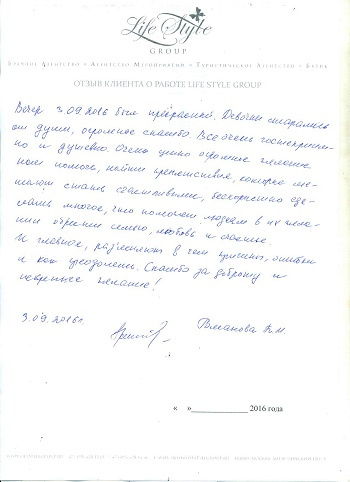 Life Style
GROUP
Брачное Агентство • Агентство Мероприятий • Туристическое Агентство • Бутик
ОТЗЫВ КЛИЕНТА О РАБОТЕ LIFE STYLE GROUP
Вечер 3.09.2016 был прекрасный. Девочки старались
от души, огромное спасибо. Все очень гостеприим-
но и душевно. Очень ценно огромное желание
помочь, найти препятствия, которые ме-
шают стать счастливыми, бескорыстно сде-
лать многое, что помогает людям в их жела-
нии обрести семью, любовь и счастье.
И главное, разъяснить в чем причины, ошибки
и как преодолеть. Спасибо за доброту и
искреннее желание!
3.09.2016г
В.М.
« » ____________ 2016 года